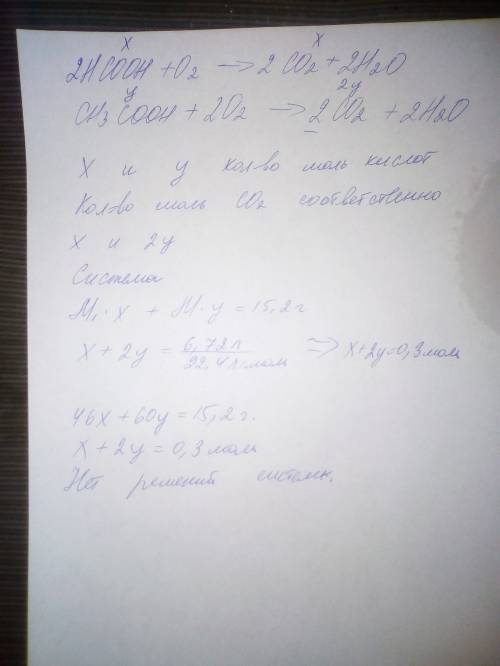 x x
2HCOOH + O2 → 2 CO2 + 2H2O
y 2y
CH3COOH + 2O2 → 2 CO2 + 2H2O
X и y кол-во моль кислот
Кол-во моль CO2 соответственно
X и 2y
Система
M1·x + M·y = 15,2 г
X + 2y = 6,72 л / 22,4 л/моль => x+2y=0,3 моль
46x + 60y = 15,2 г.
X + 2y = 0,3 моль
Нет решений системы.